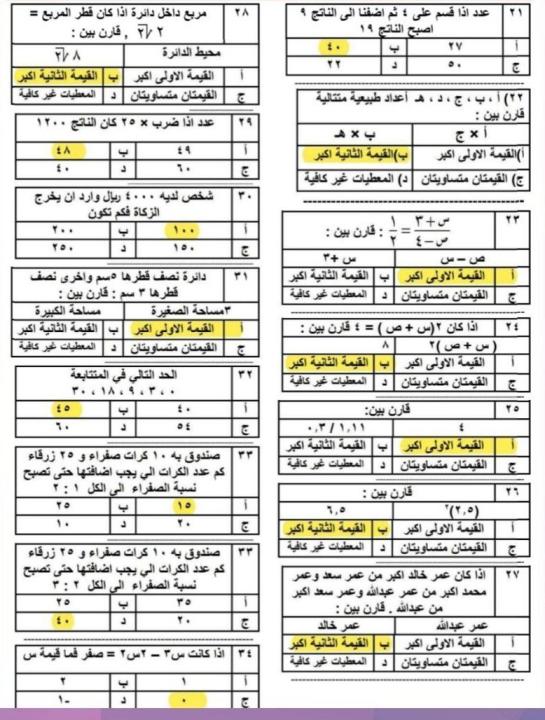 ٢١ عدد اذا قسم على ٤ ثم اضفنا الى الناتج ٩
اصبح الناتج ١٩
أ ٢٧ ب ٤٠
ج ٥٠ د ٢٢
٢٢) أ ، ب ، ج ، د ، هـ أعداد طبيعية متتالية
قارن بين :
أ × ج ب × هـ
أ)القيمة الاولى اكبر ب)القيمة الثانية اكبر
ج) القيمتان متساويتان د) المعطيات غير كافية
٢٣ س+٣ / ص−٤ = ١/٢ : قارن بين :
ص − س س +٣
أ القيمة الاولى اكبر ب القيمة الثانية اكبر
ج القيمتان متساويتان د المعطيات غير كافية
٢٤ اذا كان ٢(س + ص ) = ٤ قارن بين :
( س + ص )٢ ٨
أ القيمة الاولى اكبر ب القيمة الثانية اكبر
ج القيمتان متساويتان د المعطيات غير كافية
٢٥ قارن بين:
٤ ١,١١ / ٠,٣
أ القيمة الاولى اكبر ب القيمة الثانية اكبر
ج القيمتان متساويتان د المعطيات غير كافية
٢٦ قارن بين :
(٢,٥)² ٦,٥
أ القيمة الاولى اكبر ب القيمة الثانية اكبر
ج القيمتان متساويتان د المعطيات غير كافية
٢٧ اذا كان عمر خالد اكبر من عمر سعد وعمر
محمد اكبر من عمر عبدالله وعمر سعد اكبر
من عبدالله . قارن بين :
عمر عبدالله عمر خالد
أ القيمة الاولى اكبر ب القيمة الثانية اكبر
ج القيمتان متساويتان د المعطيات غير كافية
٢٨ مربع داخل دائرة اذا كان قطر المربع =
٢√٢ , قارن بين :
محيط الدائرة ٨√٢
أ القيمة الاولى اكبر ب القيمة الثانية اكبر
ج القيمتان متساويتان د المعطيات غير كافية
٢٩ عدد اذا ضرب × ٢٥ كان الناتج ١٢٠٠
أ ٤٩ ب ٤٨
ج ٦٠ د ٤٠
٣٠ شخص لديه ٤٠٠٠ ريال وارد ان يخرج
الزكاة فكم تكون
أ ١٠٠ ب ٢٠٠
ج ١٥٠ د ٢٥٠
٣١ دائرة نصف قطرها ٥سم واخرى نصف
قطرها ٣ سم : قارن بين :
٣مساحة الصغيرة مساحة الكبيرة
أ القيمة الاولى اكبر ب القيمة الثانية اكبر
ج القيمتان متساويتان د المعطيات غير كافية
٣٢ الحد التالي في المتتابعة
٠ ، ٣ ، ٩ ، ١٨ ، ٣٠
أ ٤٠ ب ٤٥
ج ٥٤ د ٦٠
٣٣ صندوق به ١٠ كرات صفراء و ٢٥ زرقاء
كم عدد الكرات الي يجب اضافتها حتى تصبح
نسبة الصفراء الى الكل ١ : ٢
أ ١٥ ب ٢٥
ج ٢٠ د ١٠
٣٣ صندوق به ١٠ كرات صفراء و ٢٥ زرقاء
كم عدد الكرات الي يجب اضافتها حتى تصبح
نسبة الصفراء الى الكل ٢ : ٣
أ ٣٥ ب ٢٥
ج ٢٠ د ٤٠
٣٤ اذا كانت س٣ − ٢س٢ = صفر فما قيمة س
أ ١ ب ٢
ج ٠ د -١